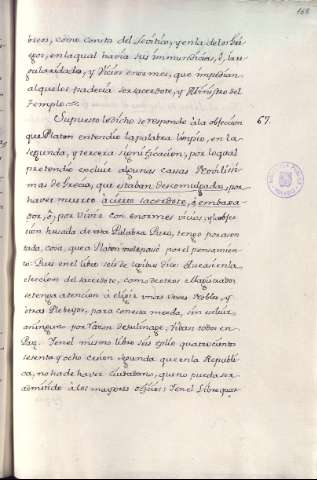 168
breos, como consta del Levitico, y en la de los Grie
gos, en la qual havia sus immundicias, è irre
gularidades, y Vicios enormes, que impedian
alque los padecia ser sacerdote, y Ministro del
Templo
Supuesto lo dicho se responde à la objeccion 67.
que Platon entendio la palabra limpio, en la
segunda, y tercera significacion, por lo qual
pretendio excluir algunas casas Nobilissi
mas de Grecia, que estaban descomulgadas, por
haver muerto à cierto sacerdote, ò embaxa
dor, ò por vivir con enormes vicios; y haver
sion husada de esta Palabra Pura, tengo por asen
tado, cosa, que à Platon no le pasó por el pensamien
to: Pues en el libro seis de legibus dice: Que assi en la
eleccion del sacerdote, como de otros Magistrados
se tenga atencion à eligir unas veces Nobles, y
otras Plebeyos, para con esta mezcla, sin excluir
a ninguno por razon de su linage, vivan todos en
Paz. Y en el mismo libro seis folio quatrocientos
setenta y ocho colum segunda que en la Republi
ca, no ha de haver ciudadano, que no pueda ser
admitido à los mayores oficios: Y en el Libro quar